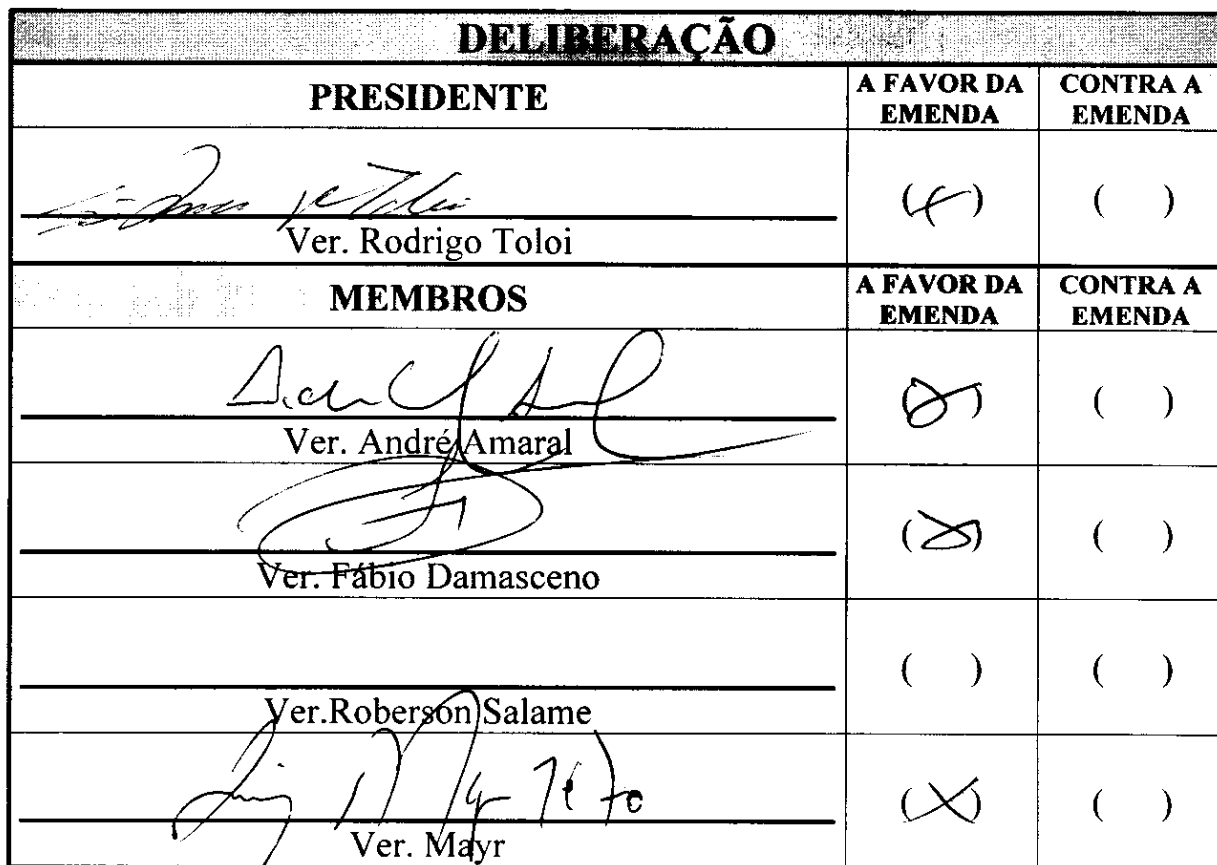 DELIBERAÇÃO
PRESIDENTE
A FAVOR DA EMENDA
CONTRA A EMENDA
Ver. Rodrigo Toloi
( )
MEMBROS
A FAVOR DA EMENDA
CONTRA A EMENDA
Ver. André Amaral
( )
Ver. Fábio Damasceno
( )
Ver.Roberson Salame
( ) ( )
Ver. Mayr
(X) ( )